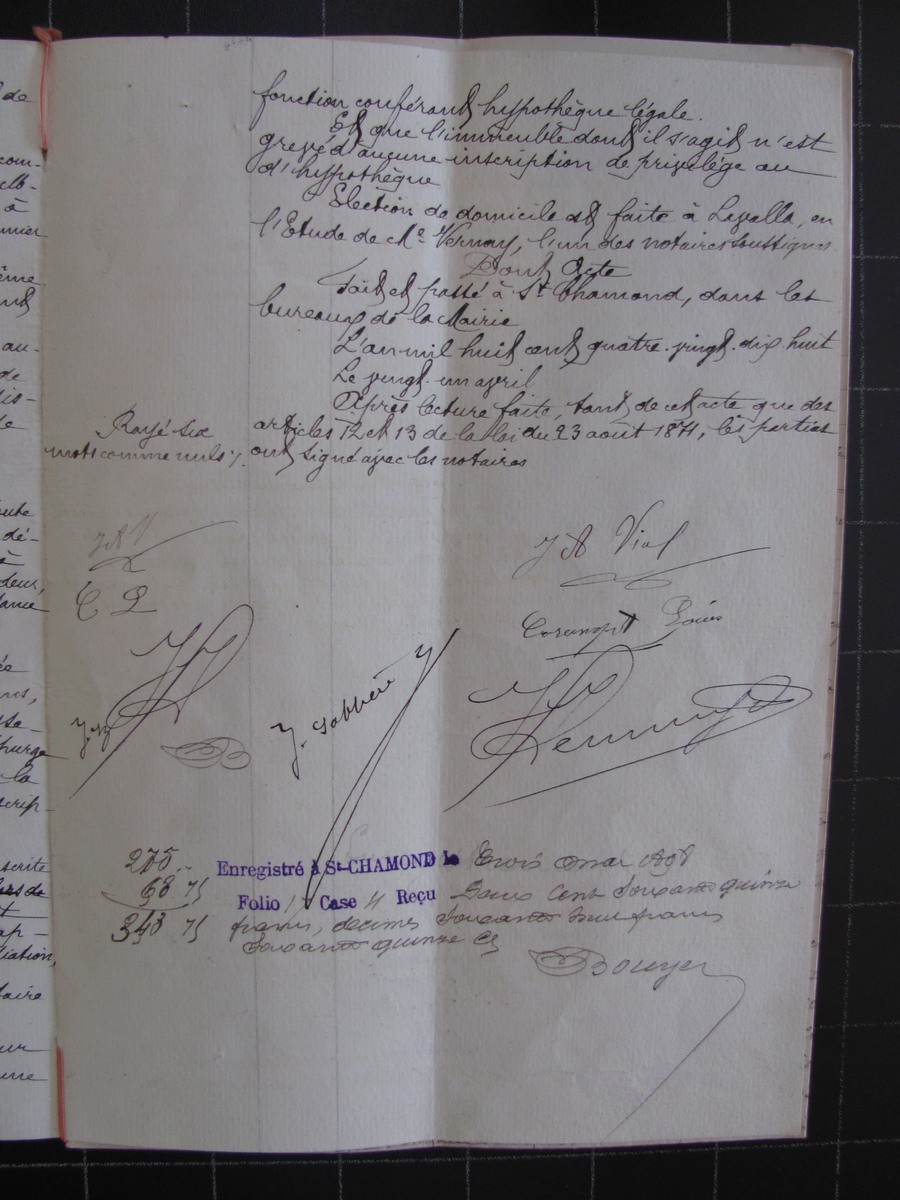 fonction conférant hypothèque légale.
Et que l'immeuble dont il s'agit n'est
grevé d'aucune inscription de privilège au
d'hypothèque
Election de domicile est faite à Lavalla, en
l'Etude de Me Vernay, l'un des notaires soussignés.
Dont Acte
Fait et passé à St Chamond, dans les
bureaux de la Mairie
L'an mil huit cent quatre-vingt-dix huit
Le vingt-un avril
Après lecture faite, tant de cet acte que des
articles 12 et 13 de la loi du 23 août 1871, les parties
ont signé avec les notaires
Rayé six
mots comme nuls
J A V
J A Vial
C L
Louis
J.
Vernay
B
275 -
68 75
343 75
Enregistré à St-CHAMOND le trois mai 1898
Folio Case 4 Reçu Deux Cent Soixante quinze
francs, decimes Soixante huit francs
Soixante quinze c
Bouyer
de
com-
à
ême
au-
de
dis-
dé-
à
deur,
ée
purge
la
scrip-
ap-
iation,
taire